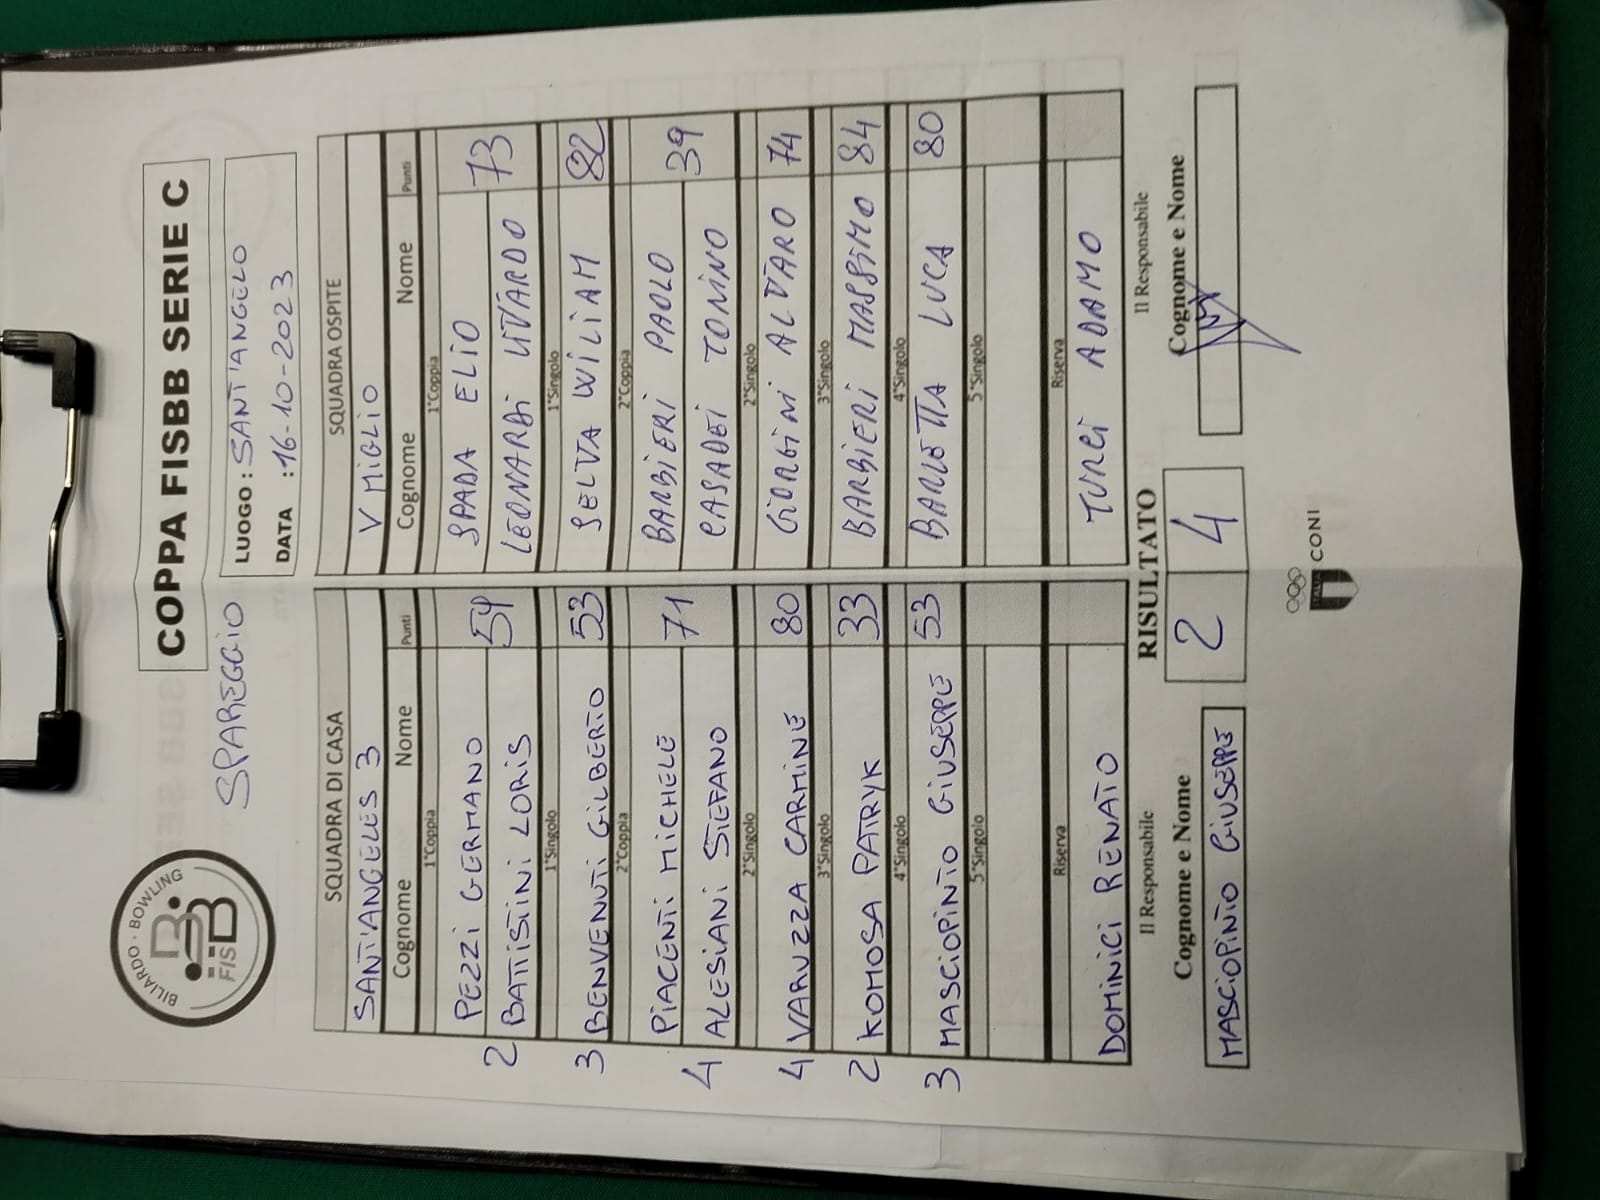 BILIARDO · BOWLING
FISBB
COPPA FISBB SERIE C
SPAREGGIO
LUOGO : SANT'ANGELO
DATA : 16-10-2023
SQUADRA DI CASA SQUADRA OSPITE
SANT'ANGELES 3 V MIGLIO
Cognome Nome Punti Cognome Nome Punti
1°Coppia 1°Coppia
PEZZI GERMANO SPADA ELIO
2 BATTISTINI LORIS 54 LEONARDI LIVARDO 73
1°Singolo 1°Singolo
3 BENVENUTI GILBERTO 53 SELVA WILIAM 82
2°Coppia 2°Coppia
PIACENTI MICHELE 71 BARBIERI PAOLO 39
4 ALESIANI STEFANO CASADEI TONINO
2°Singolo 2°Singolo
4 VARUZZA CARMINE 80 GIORGINI ALVARO 74
3°Singolo 3°Singolo
2 KOMOSA PATRYK 33 BARBIERI MASSIMO 84
4°Singolo 4°Singolo
3 MASCIOPINTO GIUSEPPE 53 BARLETTA LUCA 80
5°Singolo 5°Singolo
Riserva Riserva
DOMINICI RENATO TURCI ADAMO
Il Responsabile RISULTATO Il Responsabile
Cognome e Nome 2 4 Cognome e Nome
MASCIOPINTO GIUSEPPE
ITALIA CONI